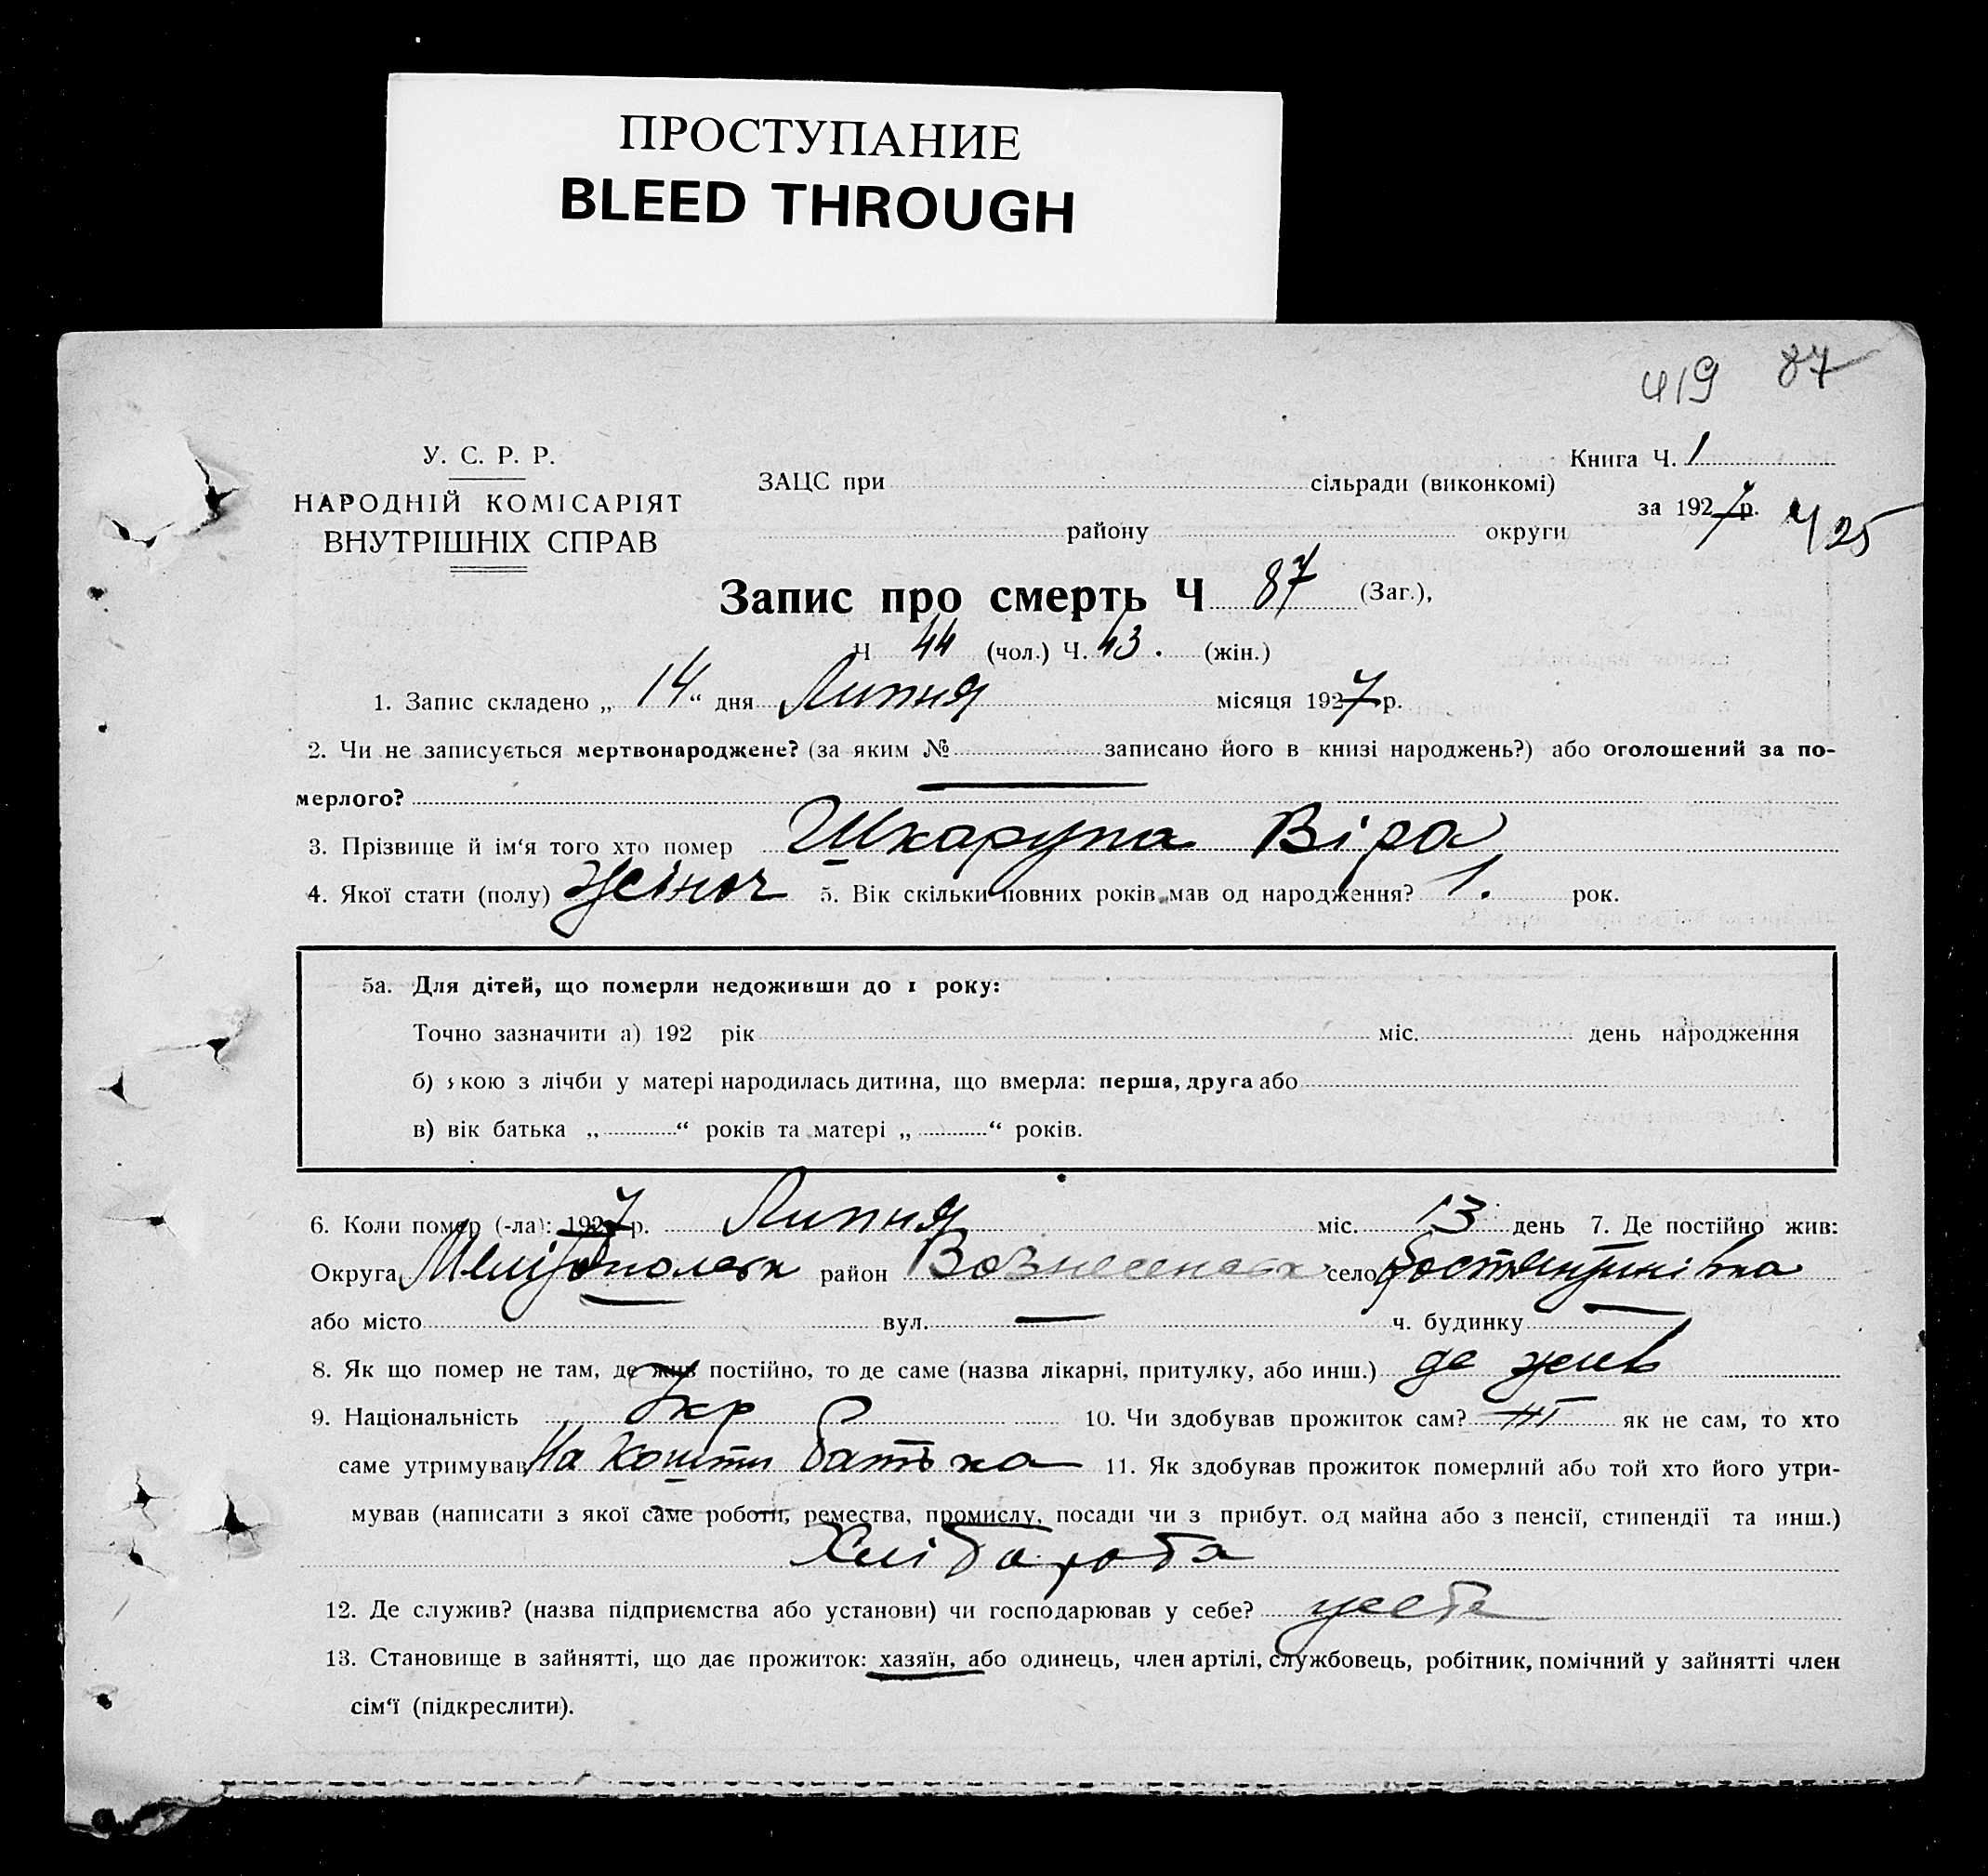 ПРОСТУПАНИЕ
BLEED THROUGH
419 87
У. С. Р. Р.
НАРОДНІЙ КОМІСАРІЯТ
ВНУТРІШНІХ СПРАВ
ЗАЦС при сільради (виконкомі)
району округи
Книга Ч. 1
за 1927 р. 425
Запис про смерть Ч 87 (Заг.),
Ч 44 (чол.) Ч. 43. (жін.)
1. Запис складено „ 14 “ дня Липня місяця 1927 р.
2. Чи не записується мертвонароджене? (за яким № записано його в книзі народжень?) або оголошений за по-
мерлого? —
3. Прізвище й ім‘я того хто помер Шкарупа Віра
4. Якої стати (полу) жіноч 5. Вік скільки повних років мав од народження? 1. рок.
5а. Для дітей, що померли недоживши до 1 року:
Точно зазначити а) 192 рік міс. день народження
б) якою з лічби у матері народилась дитина, що вмерла: перша, друга або
в) вік батька „ “ років та матері „ “ років.
6. Коли помер (-ла): 1927 р. Липня міс. 13 день 7. Де постійно жив:
Округа Мелітопольськ район Вознесенськ село
або місто — вул. — ч. будинку —
8. Як що помер не там, де жив постійно, то де саме (назва лікарні, притулку, або инш.) де жив
9. Національність Укр 10. Чи здобував прожиток сам? Ні як не сам, то хто
саме утримував На кошти батька 11. Як здобував прожиток померлий або той хто його утри-
мував (написати з якої саме роботи, ремества, промислу, посади чи з прибут. од майна або з пенсії, стипендії та инш.)
Хліборобв
12. Де служив? (назва підприємства або установи) чи господарював у себе? у себе
13. Становище в зайнятті, що дає прожиток: хазяїн, або одинець, член артілі, службовець, робітник, помічний у зайнятті член
сім‘ї (підкреслити).